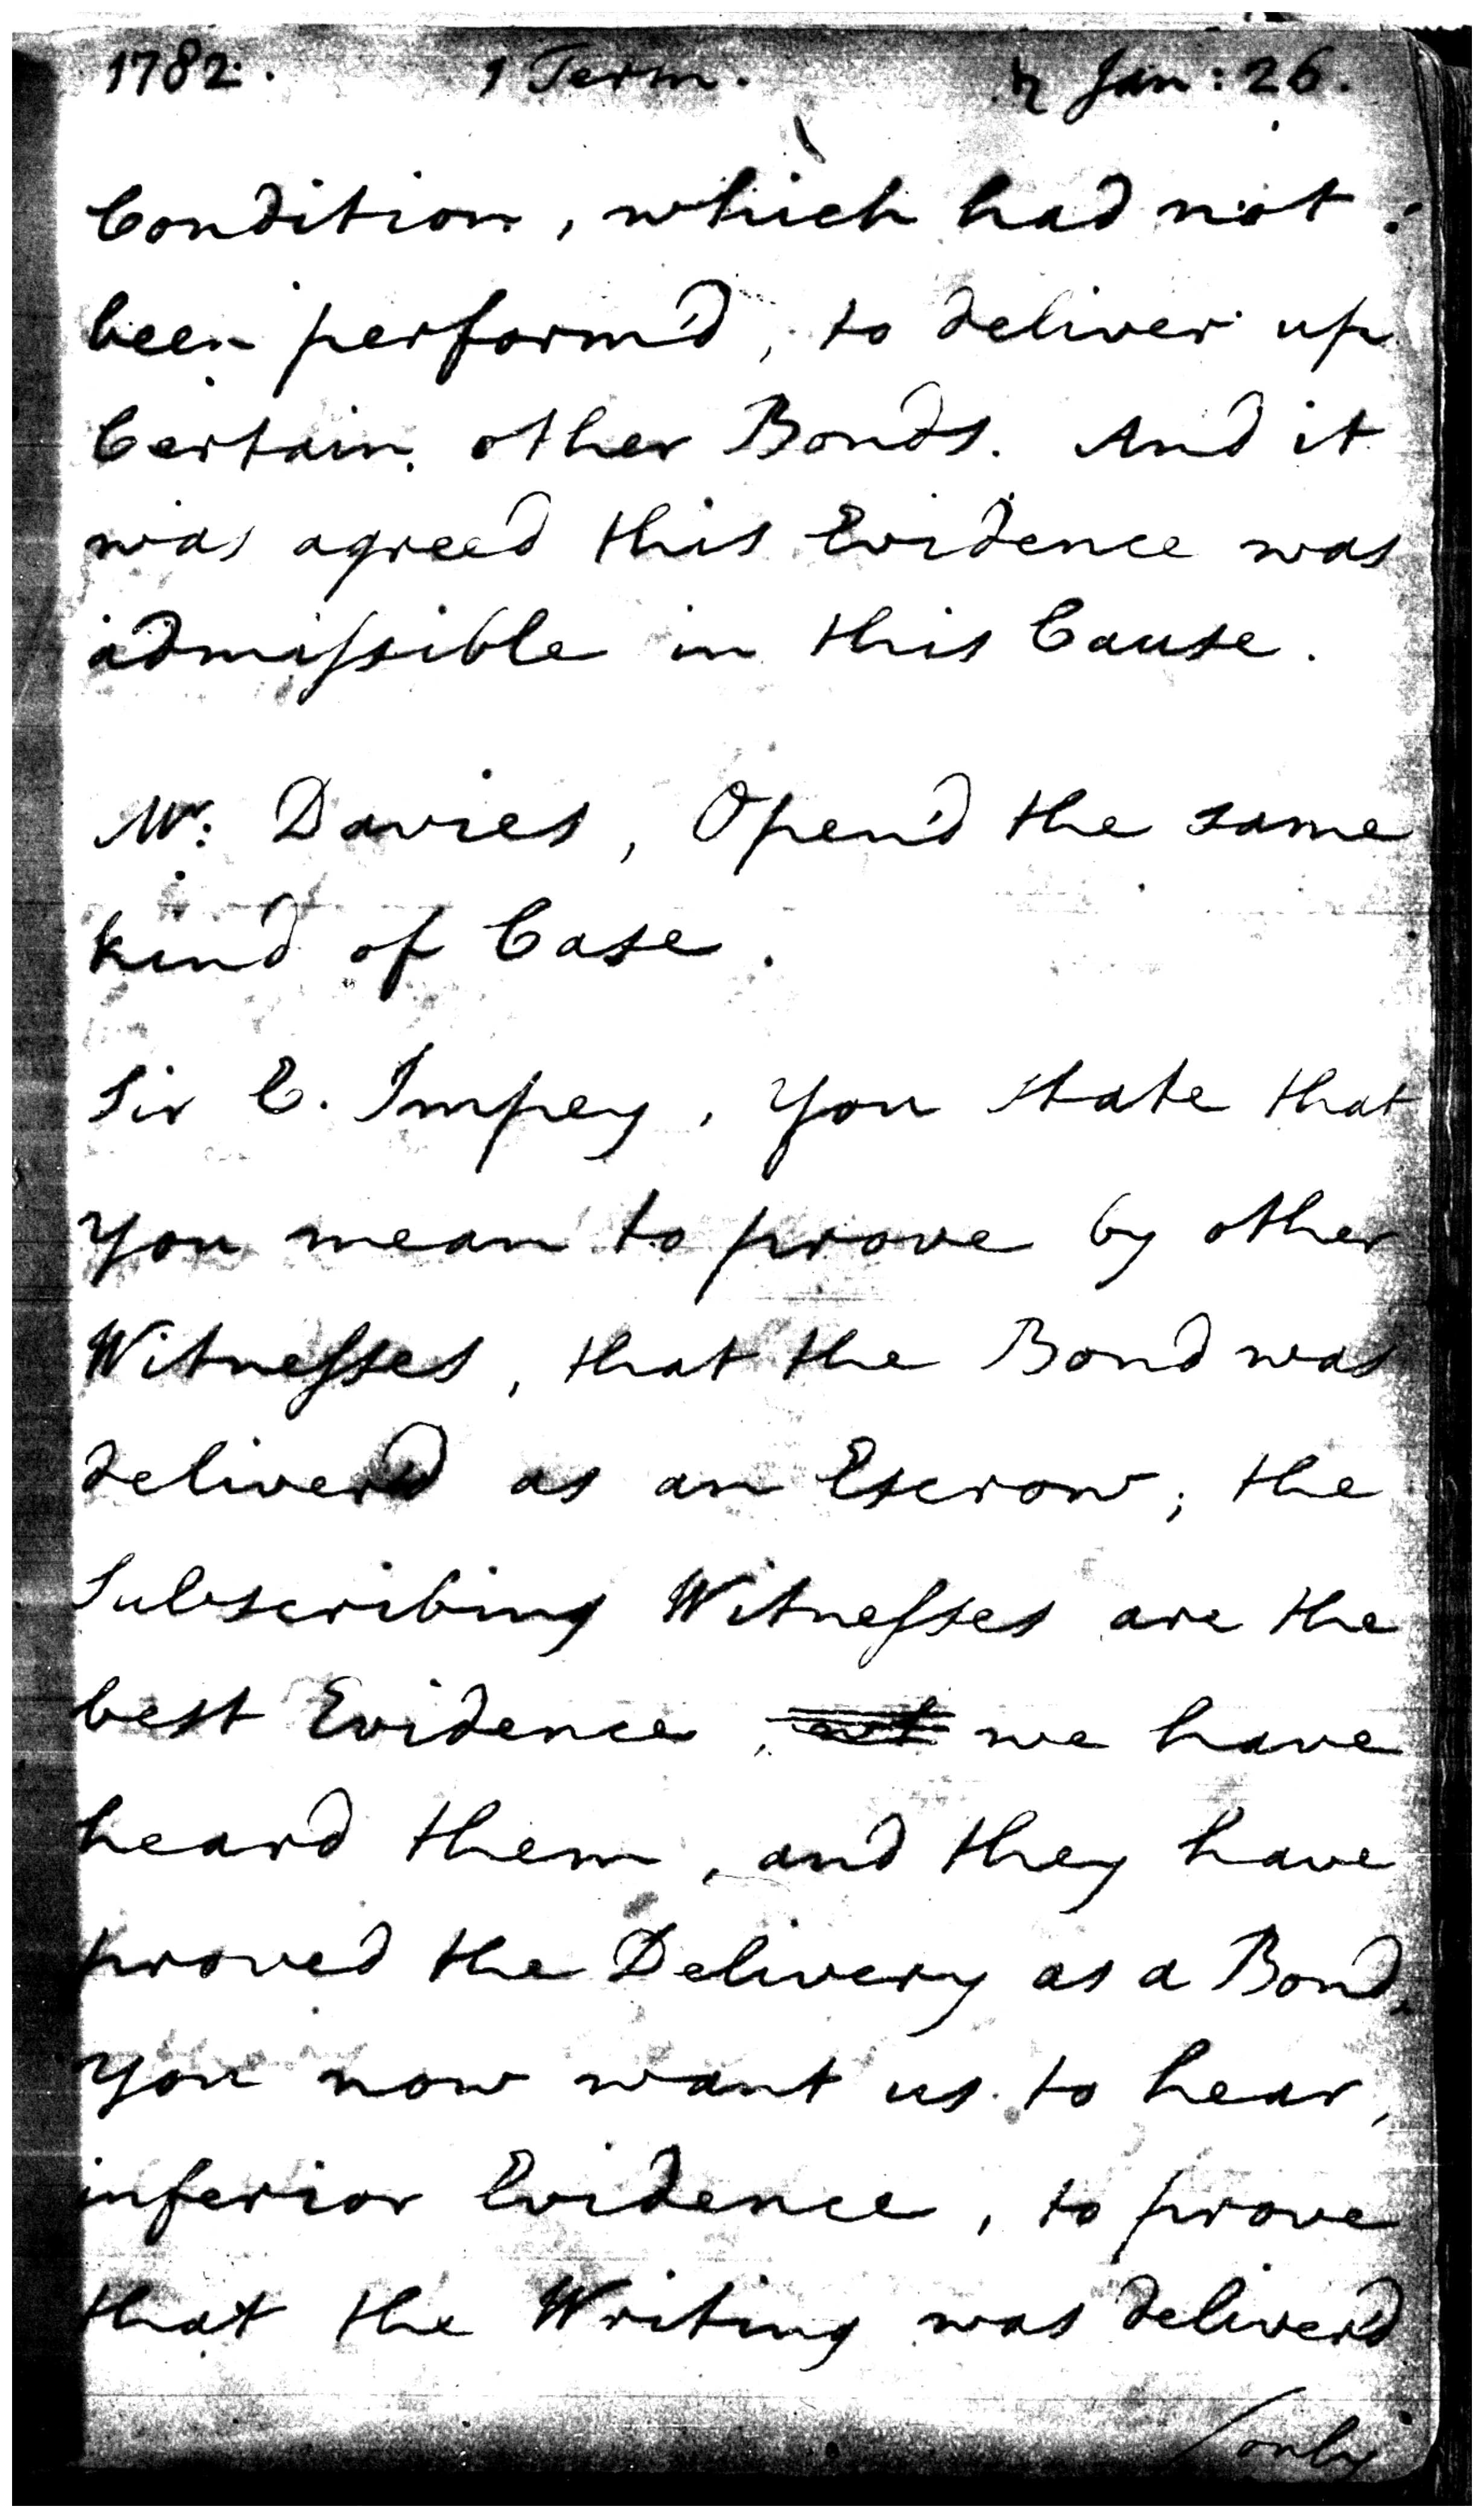 1782. 1 Term. ♄ Jan: 26.
Condition, which had not
been perform'd, to deliver up
Certain other Bonds. And it
was agreed this Evidence was
admiſsible in this Cause.
Mr: Davies, Open'd the same
kind of Case.
Sir E. Impey, You state that
you mean to prove by other
Witneſses, that the Bond was
deliver'd as an Escrow; the
Subscribing Witneſses are the
best Evidence, we have
heard them, and they have
proved the Delivery as a Bond.
You now want us to hear,
inferior Evidence, to prove
that the Writing was deliver'd
/only